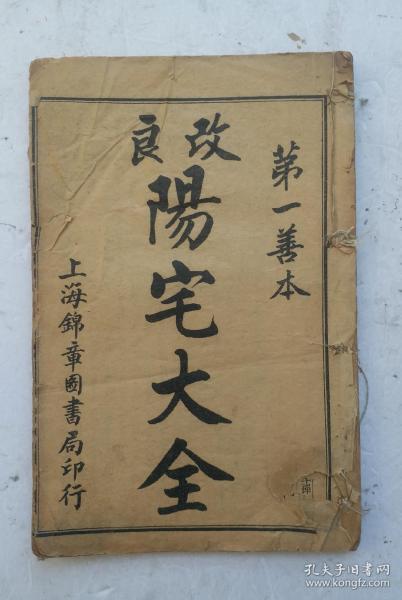 第一善本
改良
陽宅大全
上海錦章圖書局印行
孔夫子旧书网
www.kongfz.com